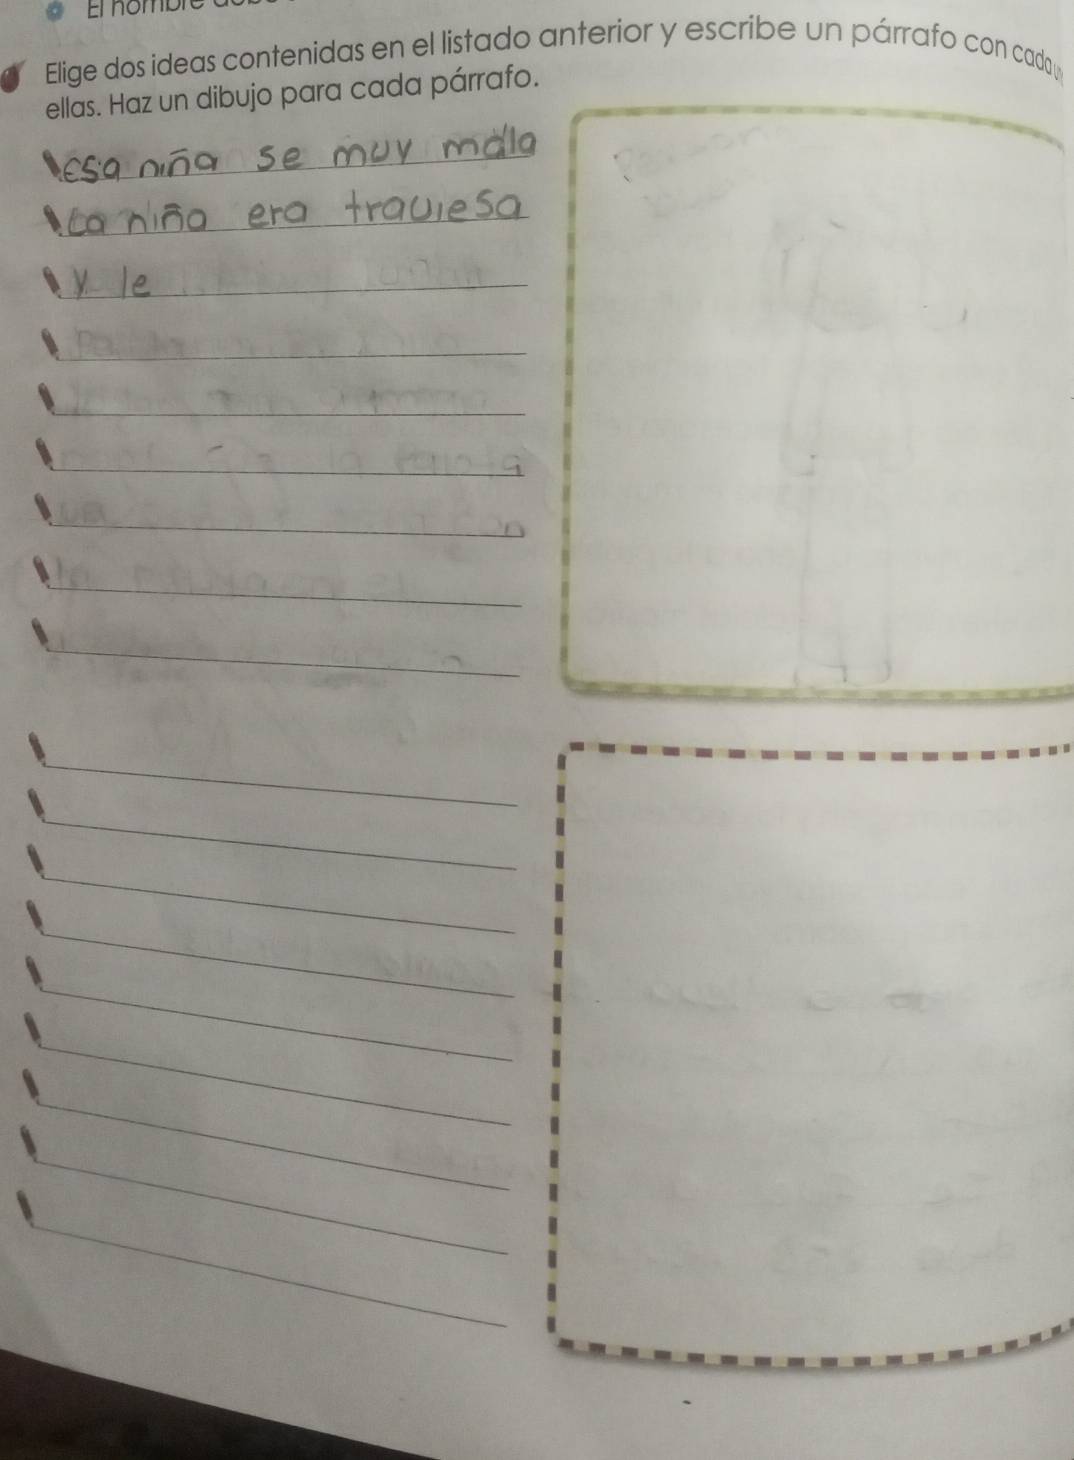 El nombre
Elige dos ideas contenidas en el listado anterior y escribe un párrafo con cada
ellas. Haz un dibujo para cada párrafo.
esa niña se muy mala
La niña era traviesa
y le